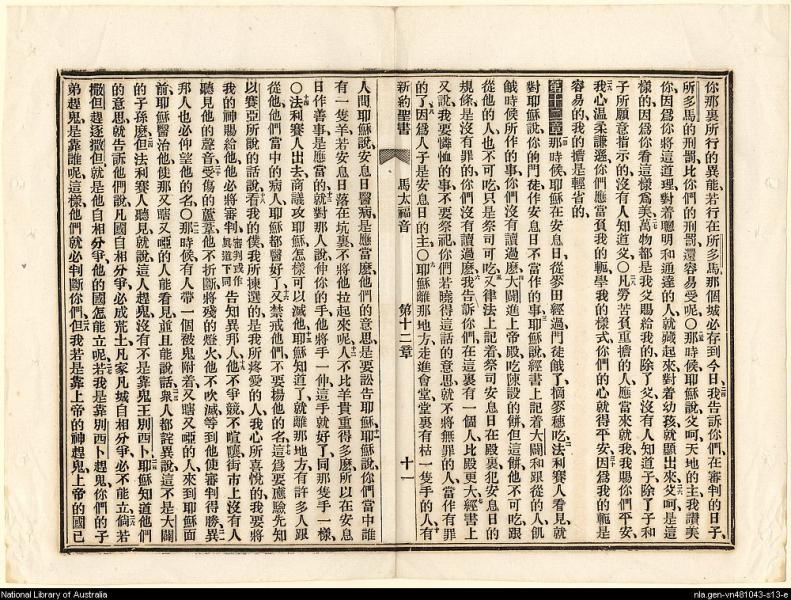 你那裏所行的異能、若行在所多馬、那個城必存到今日、我告訴你們、在審判的日子、
所多馬的刑罰、比你們的刑罰還容易受呢○那時候耶穌說、父呵、天地的主、我讚美
你、因爲你將這道理對着聰明和通達的人就藏起來、對着幼孩就顯出來、父呵、是這
樣的、因爲你看這樣爲美、萬物都是我父賜給我的、除了父沒有人知道子、除了子和
子所願意指示的沒有人知道父○凡勞苦負重擔的人、應當來就我、我賜你們平安、
我心溫柔謙遜、你們應當負我的軛、學我的樣式、你們的心就得平安、因爲我的軛是
容易的、我的擔是輕省的、
第十二章 那時候耶穌在安息日、從麥田經過、門徒餓了、摘麥穗吃、法利賽人看見、就
對耶穌說、你的門徒作安息日不當作的事、耶穌說、經書上記着大闢和跟從的人飢
餓時候所作的事、你們沒有讀過麽、大闢進上帝殿吃陳設的餅、但這餅他不可吃、跟
從他的人也不可吃、只是祭司可吃、又律法上記着、祭司安息日在殿裏犯安息日的
規條、是沒有罪的、你們沒有讀過麽、我告訴你們、在這裏有一個人比殿更大、經書上
又說、我要憐恤的事、不要祭祀、你們若曉得這話的意思、就不將無罪的人當作有罪
的了、因爲人子是安息日的主○耶穌離那地方、走進會堂、堂裏有枯一隻手的人、有
新約聖書 馬太福音 第十二章 十一
人問耶穌說、安息日醫病是應當麽、他們的意思是要訟告耶穌、耶穌說、你們當中誰
有一隻羊、若安息日落在坑裏、不將他拉起來呢、人不比羊貴重得多麽、所以在安息
日作善事是應當的、就對那人說、伸你的手、他將手一伸、這手就好了、同那隻手一樣、
○法利賽人出去商議攻耶穌、怎樣可以滅他、耶穌知道了、就離那地方、有許多人跟
從他、他們當中的病人、耶穌都醫好了、又禁戒他們、不要揚他的名、這爲要應驗先知
以賽亞所說的話、說、看我的僕、我所揀選的、是我所將愛的人、我心所喜悅的、我要將
我的神賜給他、他必將審判審判或作眞道下同告知異邦人、他不爭競、不喧嚷、街市上沒有人
聽見他的聲音、受傷的蘆葦、他不折斷、將殘的燈火、他不吹滅、等到他使審判得勝、異
邦人也必仰望他的名○那時候有人帶一個被鬼附着又瞎又啞的人、來到耶穌面
前、耶穌醫治他、使那又瞎又啞的人、能看見、並且能說話、衆人都詫異說、這不是大闢
的子孫麽、但法利賽人聽見就說、這人趕鬼、沒有不是靠鬼王別西卜、耶穌知道他們
的意思、就告訴他們說、凡國自相分爭、必成荒土、凡家凡城自相分爭、必不能立、倘若
撒但趕逐撒但、就是他自相分爭、他的國怎能立呢、若我是靠別西卜趕鬼、你們的子
弟趕鬼是靠誰呢、這樣他們就必判斷你們、但我若是靠上帝的神趕鬼、上帝的國已
National Library of Australia
nla.gen-vn481043-s13-e